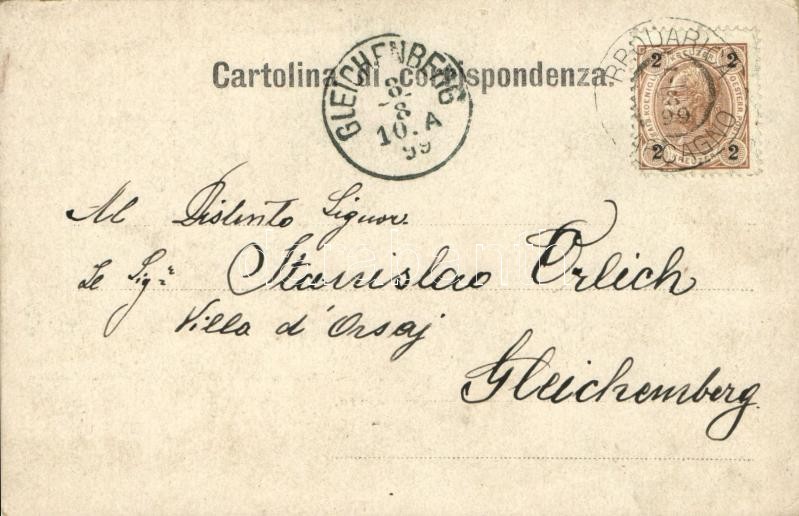 Cartolina di corrispondenza.
GLEICHENBERG
8/8
10.A
99
2 2
KREUZER
2 2
8
99
Al Distinto Signor
Le Sigr
Stanislao Orlich
Villa d'Orsaj
Gleichemberg
darabanth